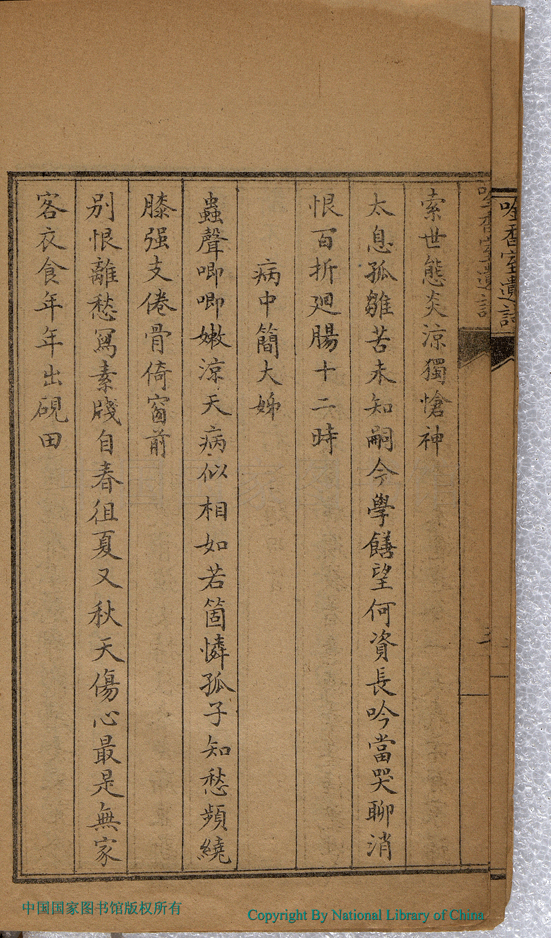 吟香室遺詩
索世態炎涼獨愴神
太息孤雛苦未知嗣今學饍望何資長吟當哭聊消
恨百折廻腸十二時
病中簡大姊
蟲聲唧唧嫩涼天病似相如若箇憐孤子知愁頻繞
膝强支倦骨倚窗前
别恨離愁寫素牋自春徂夏又秋天傷心最是無家
客衣食年年出硯田
中国国家图书馆版权所有
Copyright By National Library of China